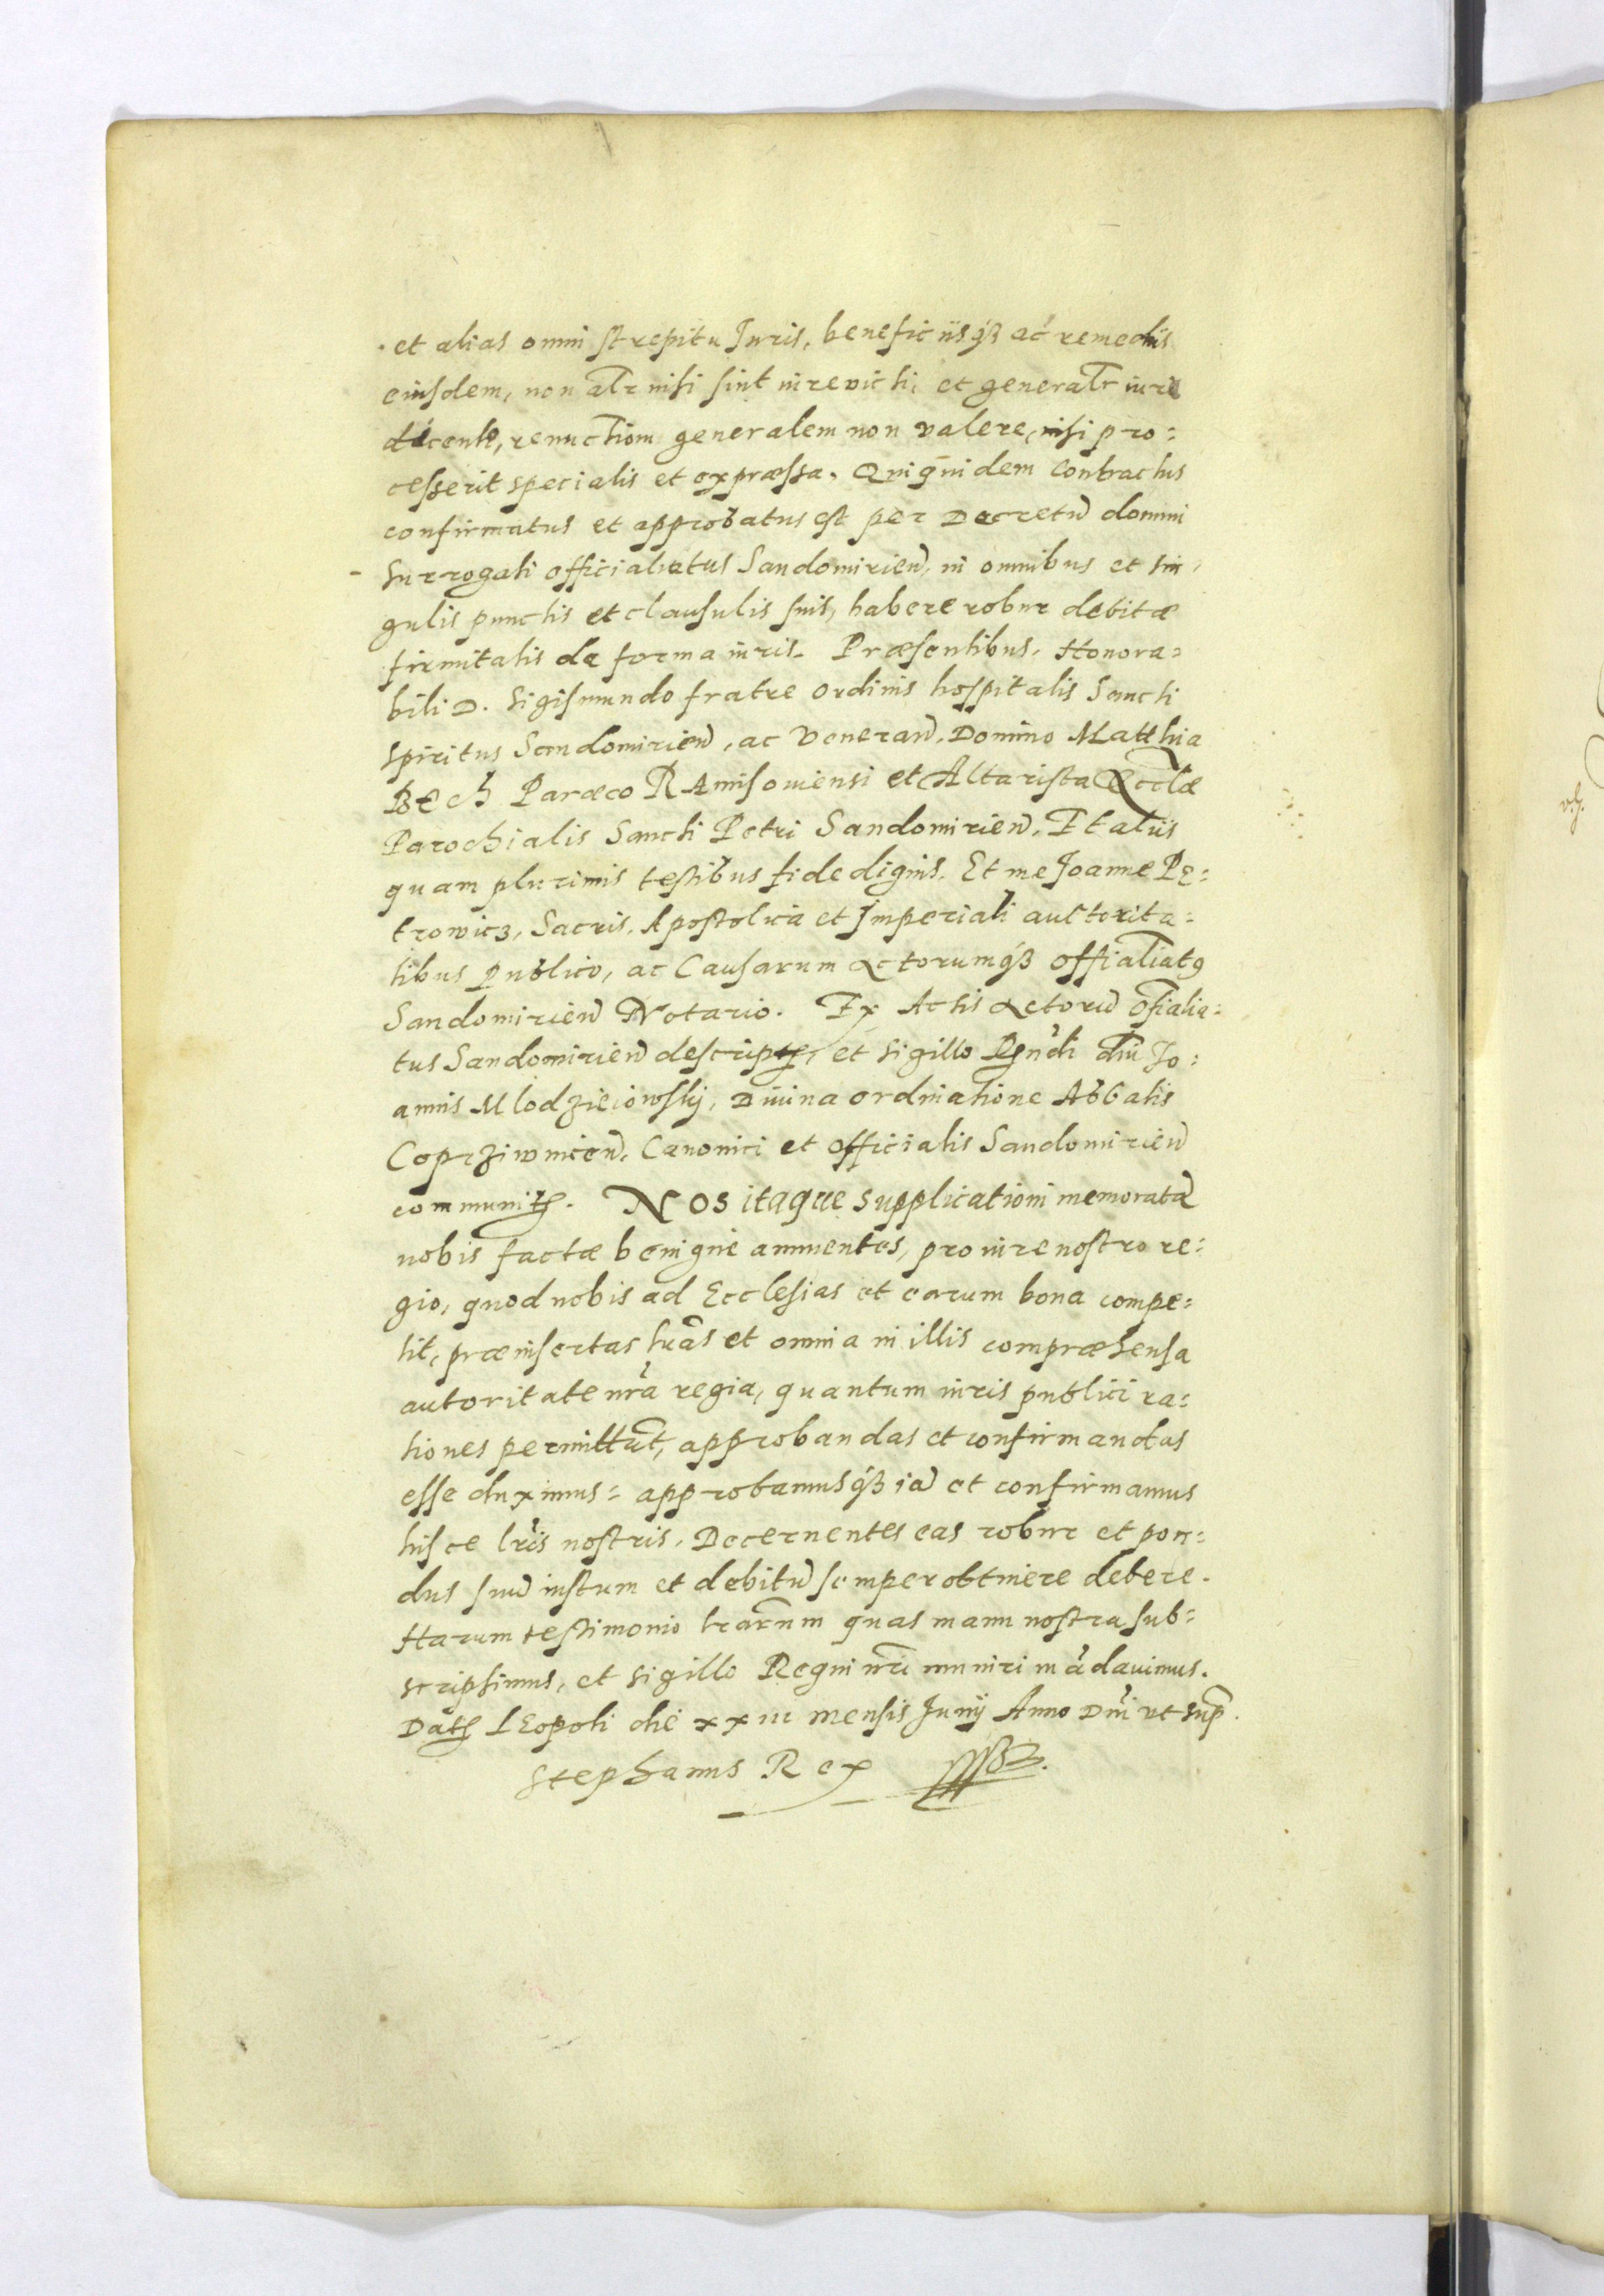 et alias omni strepitu Juris, beneficiisq₃ ac remediis
eiusdem, non alr nisi sint in re victi, et generalr iure
dicente, renuctiom generalem non valere, nisi pro=
cesserit specialis et expræssa. Qui quidem Contractus
confirmatus et approbatus est per Decretū domini
Surrogati officialatus Sandomirien̄, in omnibus et sin,
gulis punctis et clausulis suis, habere robur debitæ
firmitatis de forma iuris. Præsentibus, Honora=
bili D. Sigismundo fratre ordinis hospitalis Sancti
Spiritus Sandomirien̄, ac Veneran̄. Domino Matthia
Bech Paræco RAmisoviensi et Altarista Ecclæ
Parochialis Sancti Petri Sandomirien̄. Et aliis
quam plurimis testibus fide dignis. Et me Joanne Pe=
trowicz, Sacris, Apostolica et Imperiali auctorita=
tibus Publico, ac Causarum Actorumq₃ offialiatꝯ
Sandomirien̄ Notario. Ex Actis Actorū ofialia=
tus Sandomirien̄ descript, et sigillo Rndi dni Jo=
annis Mlodzieiowskij, Divina ordinatione Abbatis
Coprziwnicen̄, Canonici et Officialis Sandomirien̄
communit. NOS itaque supplicationi memoratæ
nobis factæ benigne annuentes, pro iure nostro re=
gio, quod nobis ad Ecclesias et earum bona compe=
tit, præinsertas lr̄as et omnia in illis compræhensa
autoritate nr̄a regia, quantum iuris publici ra=
tiones permittūt, approbandas et confirmandas
esse duximus= approbamusq₃ iā et confirmamus
hisce lr̄is nostris. Decernentes eas robur et pon=
dus suū iustum et debitū semper obtinere debere.
Harum testimonio lr̄arum quas manu nostra sub=
scripsimus, et sigillo Regni nr̄i muniri mādavimus.
Dat LEopoli die xxiii mensis Junij Anno Dnī ut sup.
Stephanus Rex